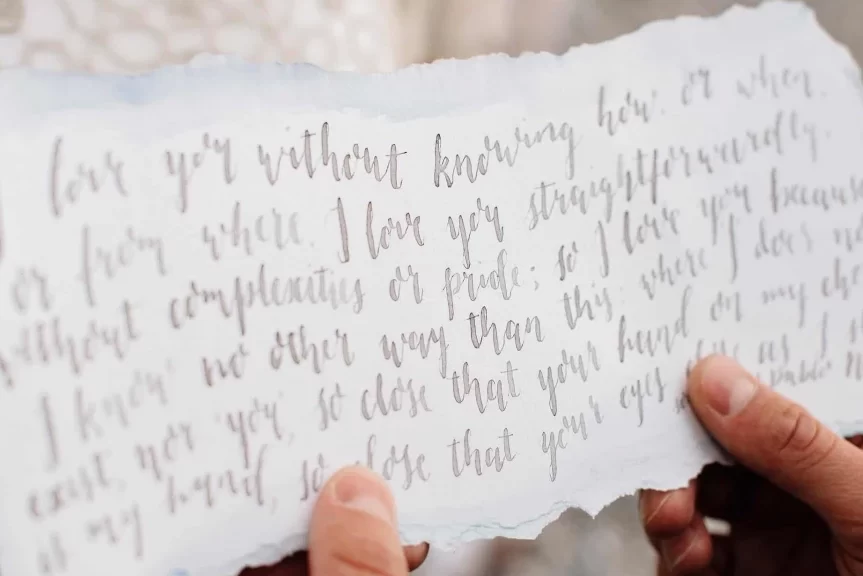 love you without knowing how, or when,
or from where. I love you straightforwardly,
without complexities or pride; so I love you because
I know no other way than this where I does no
exist, nor you, so close that your hand on my che
is my hand, so close that your eyes as I